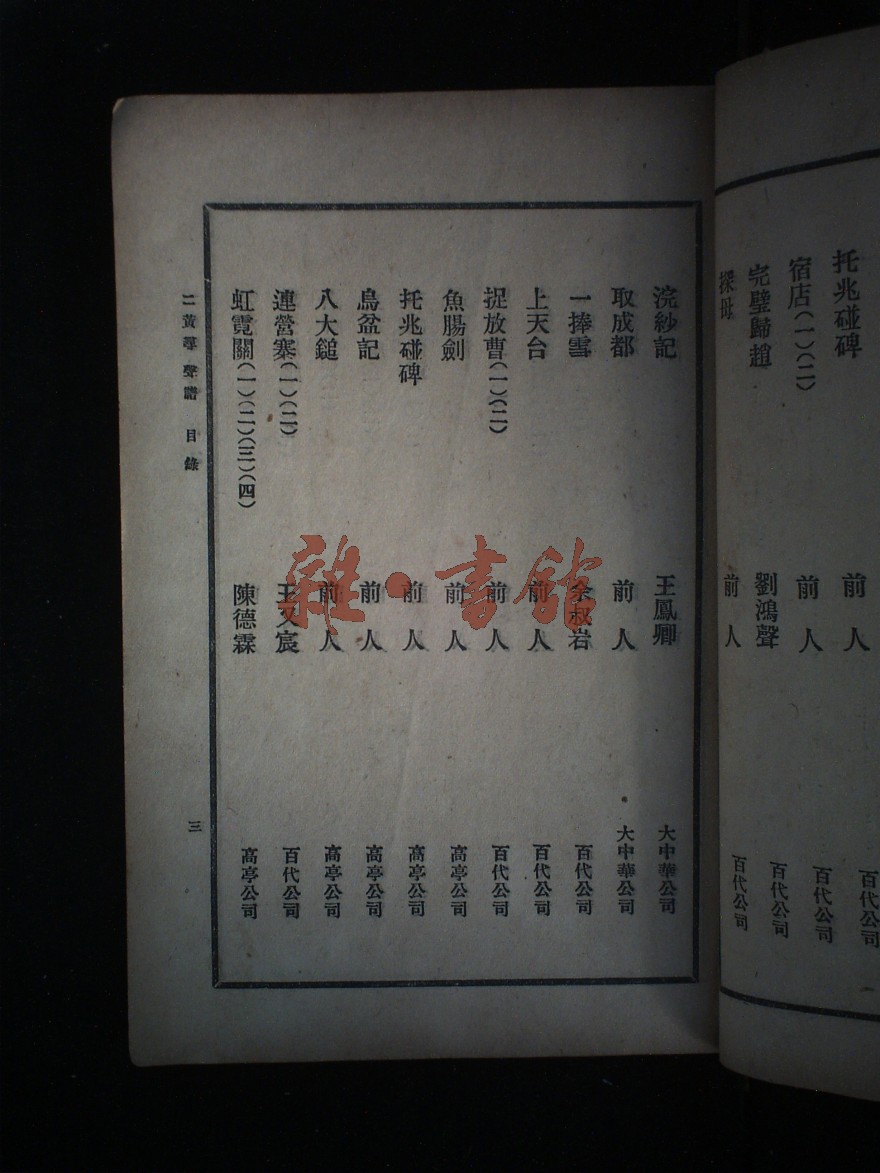 托兆碰碑 前人 百代公司
宿店(一)(二) 前人 百代公司
完璧歸趙 劉鴻聲 百代公司
探母 前人 百代公司
浣紗記 王鳳卿 大中華公司
取成都 前人 大中華公司
一捧雪 余叔岩 百代公司
上天台 前人 百代公司
捉放曹(一)(二) 前人 百代公司
魚腸劍 前人 高亭公司
托兆碰碑 前人 高亭公司
烏盆記 前人 高亭公司
八大鎚 前人 高亭公司
連營寨(一)(二) 王又宸 百代公司
虹霓關(一)(二)(三)(四) 陳德霖 高亭公司
二黃尋聲譜 目錄 三
雜·書館